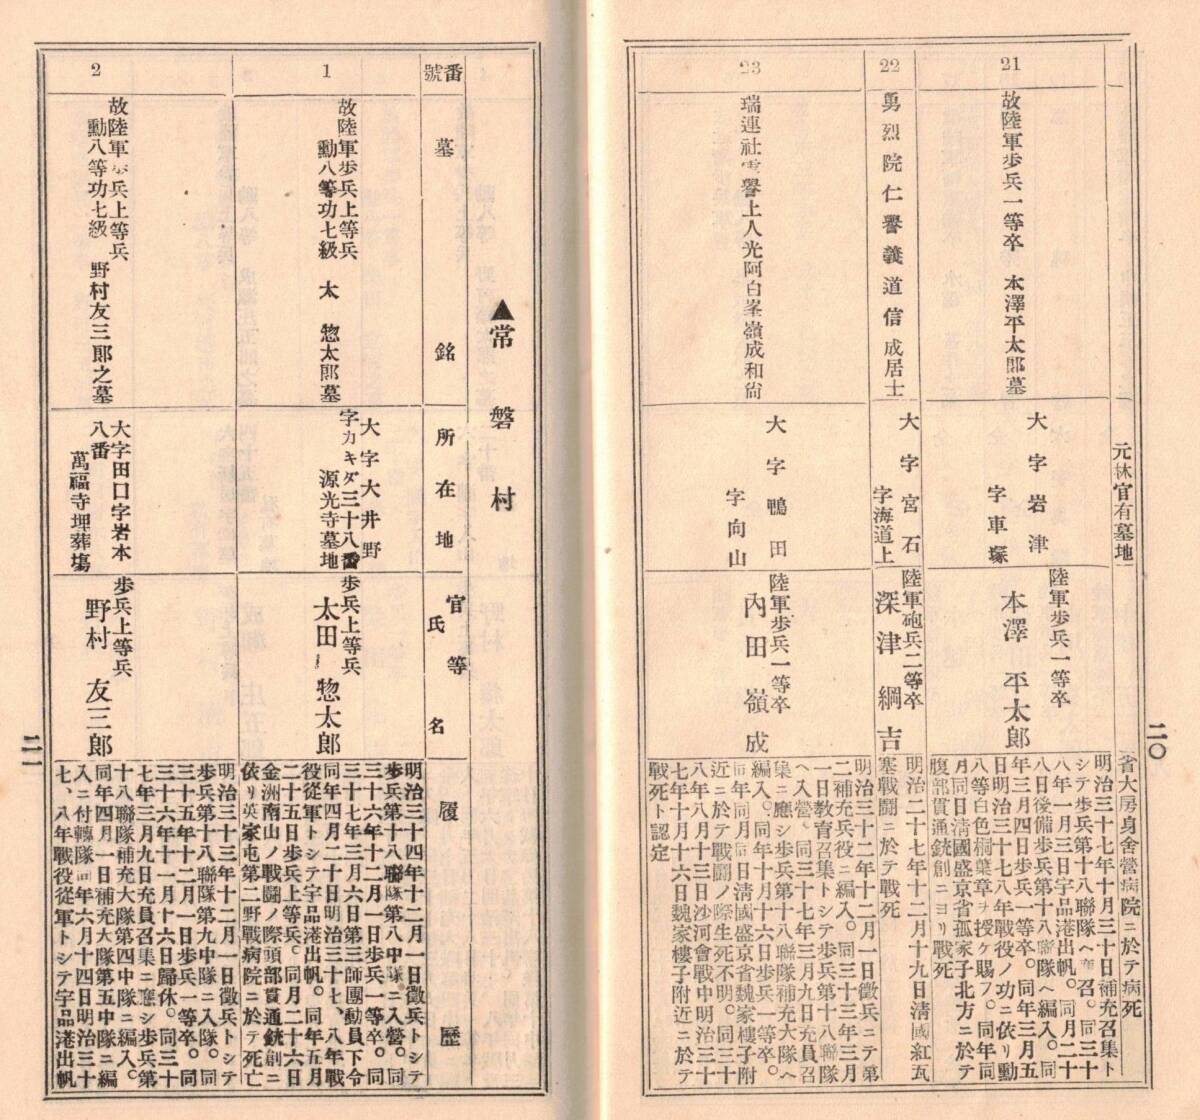 二〇
元林官有墓地
省大房身舍營病院ニ於テ病死
21
故陸軍歩兵一等卒 本澤平太郎墓
大字岩津
字車塚
陸軍歩兵一等卒
本澤平太郎
明治三十七年十月三十日補充召集ト
シテ歩兵第十八聯隊ヘ應召。同三十
八年一月三日宇品港出帆。同月二十
八日後備歩兵第十八聯隊ヘ編入。同
年三月四日歩兵一等卒。同年三月五
日明治三十七八年戰役ノ功ニ依リ勳
八等白色桐葉章ヲ授ケ賜フ。同年同
月同日淸國盛京省孤家子北方ニ於テ
腹部貫通銃創ニヨリ戰死
22
勇烈院仁譽義道信成居士
大字宮石
字海道上
陸軍砲兵二等卒
深津綱吉
明治二十七年十二月十九日淸國紅瓦
塞戰鬪ニ於テ戰死
23
瑞連社雲譽上人光阿白峯嶺成和尙
大字鴨田
字向山
陸軍歩兵一等卒
內田嶺成
明治三十二年十二月一日徵兵ニテ第
二補充兵役ニ編入。同三十三年三月
一日敎育召集トシテ歩兵第十八聯隊
ヘ入營。同三十七年三月九日充員召
集ニ應シ歩兵第十八聯隊補充大隊ヘ
編入。同年十月十六日歩兵一等卒。
同年同月同日淸國盛京省魏家樓子附
近ニ於テ戰鬪ノ際生死不明。同三十
八年八月十三日沙河會戰中明治三十
七年十月十六日魏家樓子附近ニ於テ
戰死ト認定
▲常磐村
番號
墓銘
所在地
官等
氏名
履歷
1
故陸軍歩兵上等兵
勳八等功七級 太 惣太郎墓
大字大井野
字カキダ三十八番
源光寺墓地
歩兵上等兵
太田惣太郎
明治三十四年十二月一日徵兵トシテ
歩兵第十八聯隊第八中隊ニ入營。同
三十六年十二月一日歩兵一等卒。同
三十七年三月六日第三師團動員下令
同年四月二十日明治三十七、八年戰
役從軍トシテ宇品港出帆。同年五月
二十五日歩兵上等兵。同月二十六日
金洲南山ノ戰鬪ノ際頭部貫通銃創ニ
依リ英家屯第二野戰病院ニ於テ死亡
2
故陸軍歩兵上等兵
勳八等功七級 野村友三郎之墓
大字田口字岩本
八番
萬福寺埋葬塲
歩兵上等兵
野村友三郎
明治三十三年十二月一日徵兵トシテ
歩兵第十八聯隊第九中隊ニ入隊。同
三十五年十二月一日歩兵一等卒。同
三十六年十一月十六日歸休。同三十
七年三月九日充員召集ニ應シ歩兵第
十八聯隊補充大隊第四中隊ニ編入。
同年四月一日補充大隊第五中隊ニ編
入ニ付轉隊同年六月十四日明治三十
七、八年戰役從軍トシテ宇品港出帆
二一